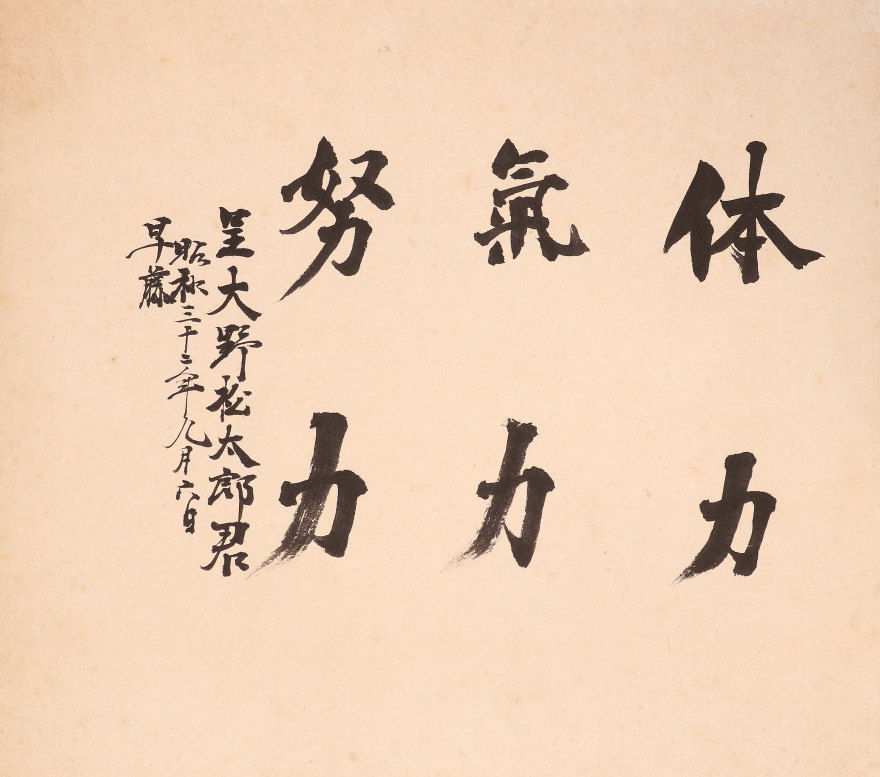 体力
氣力
努力
呈大野松太郎君
昭和三十二年九月六日
早藤